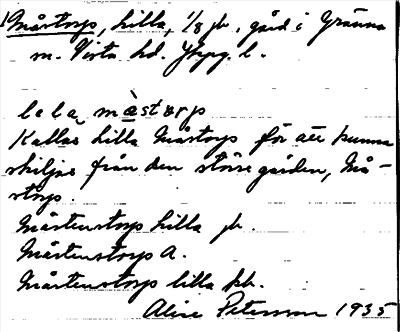 1 Måstorp, Lilla, 1/8 jb, gård i Gränna
m. Vista hd. Jkpg. l.
lela måstorp
Kallas Lilla Måstorp för att kunna
skiljas från den större gården, Må-
storp.
Mårtenstorp Lilla jb.
Mårtenstorp A.
Mårtenstorp lilla kb.
Alice Peterson 1935